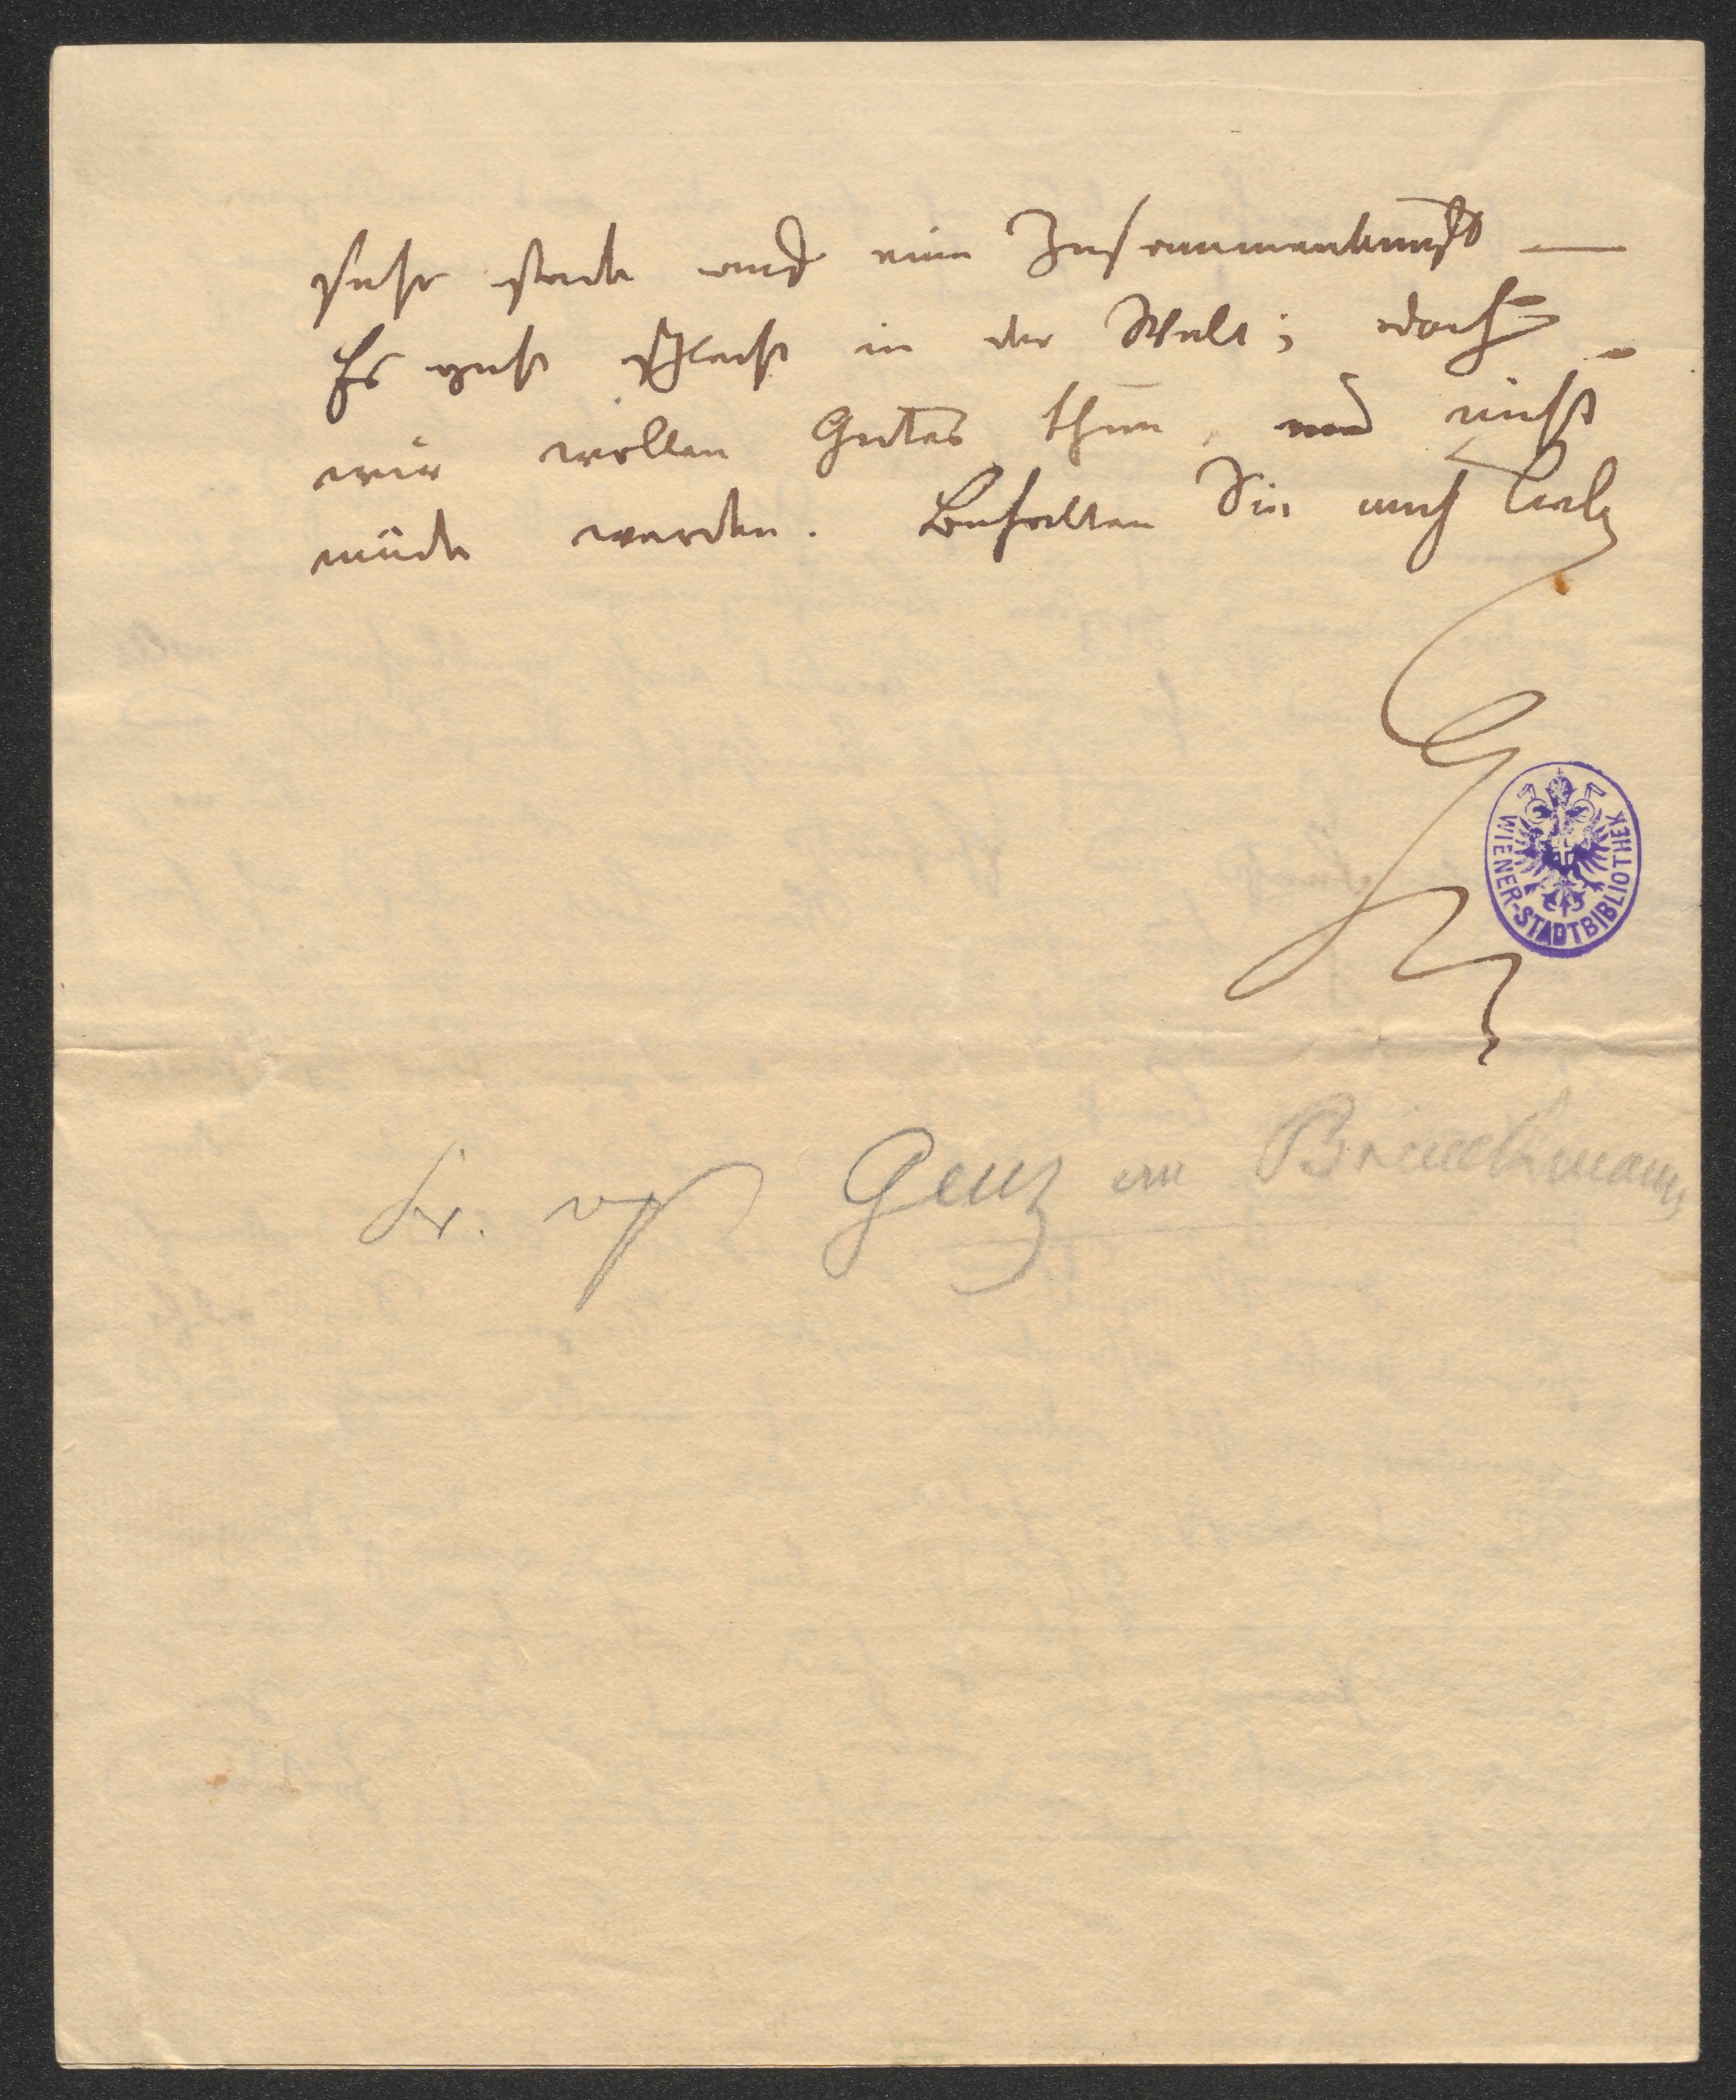 sehr stark auf eine Zusammenkunft —
Es geht schlecht in der Welt; doch
wir wollen Gutes thun, und nicht
müde werden. Behalten Sie mich lieb
Gz
Fr. v Genz an Brinckmann
WIENER-STADTBIBLIOTHEK